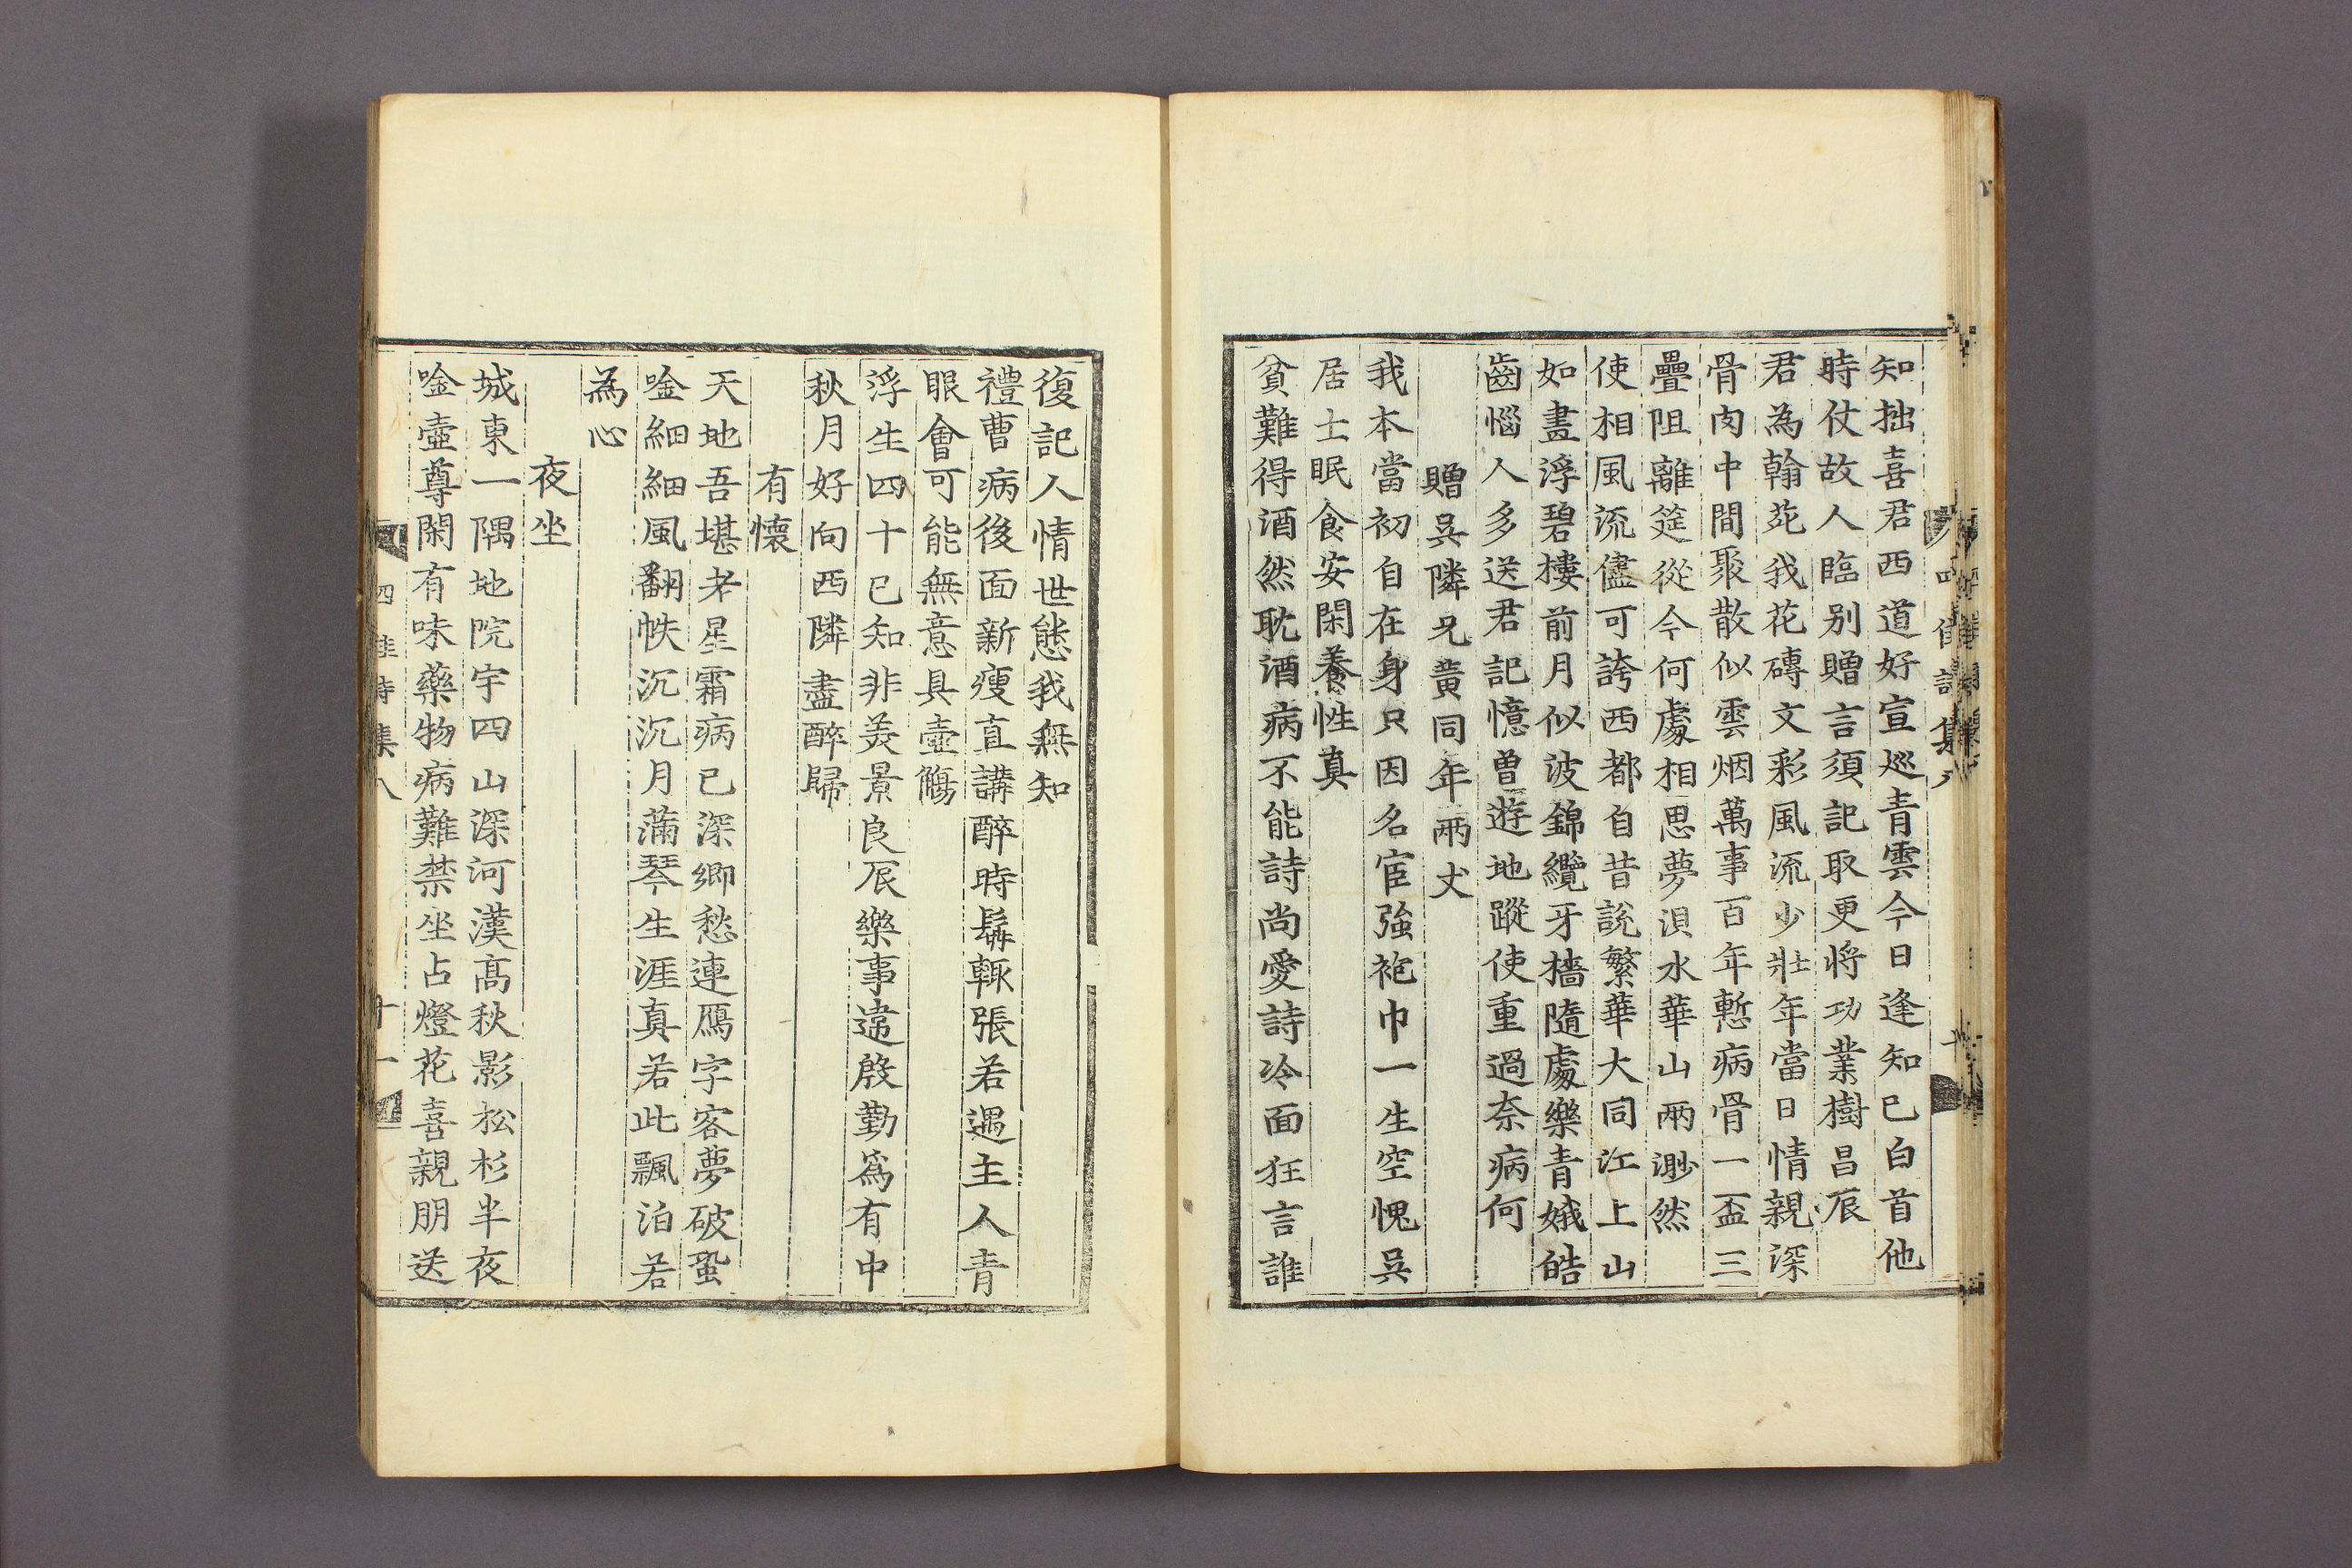 知拙喜君西道好宣廵青雲今日逢知已白首他
時仗故人臨别贈言須記取更将功業樹昌辰
君為翰苑我花磚文彩風流少壯年當日情親深
骨肉中間聚散似雲烟萬事百年慙病骨一盃三
疊阻離筵從今何處相思夢浿水華山兩渺然
使相風流儘可誇西都自昔說繁華大同江上山
如畫浮碧樓前月似波錦纜牙檣隨處樂青娥皓
齒惱人多送君記憶曽遊地蹤使重過奈病何
贈吳隣兄黃同年兩丈
我本當初自在身只因名宦強袍巾一生空愧吳
居士眠食安閑養性真
貧難得酒然耽酒病不能詩尚愛詩冷面狂言誰
復記人情世態我無知
禮曹病後面新瘦直講醉時鬍輒張若遇主人青
眼會可能無意具壺觴
浮生四十已知非羙景良辰樂事違殷勤爲有中
秋月好向西隣盡醉歸
有懷
天地吾堪老星霜病已深鄉愁連鴈字客夢破蛩
唫細細風翻帙沉沉月蒲琴生涯真若此飄泊若
為心
夜坐
城東一隅地院宇四山深河漢髙秋影松杉半夜
唫壺尊閑有味藥物病難禁坐占燈花喜親朋送
四佳詩集八
十一